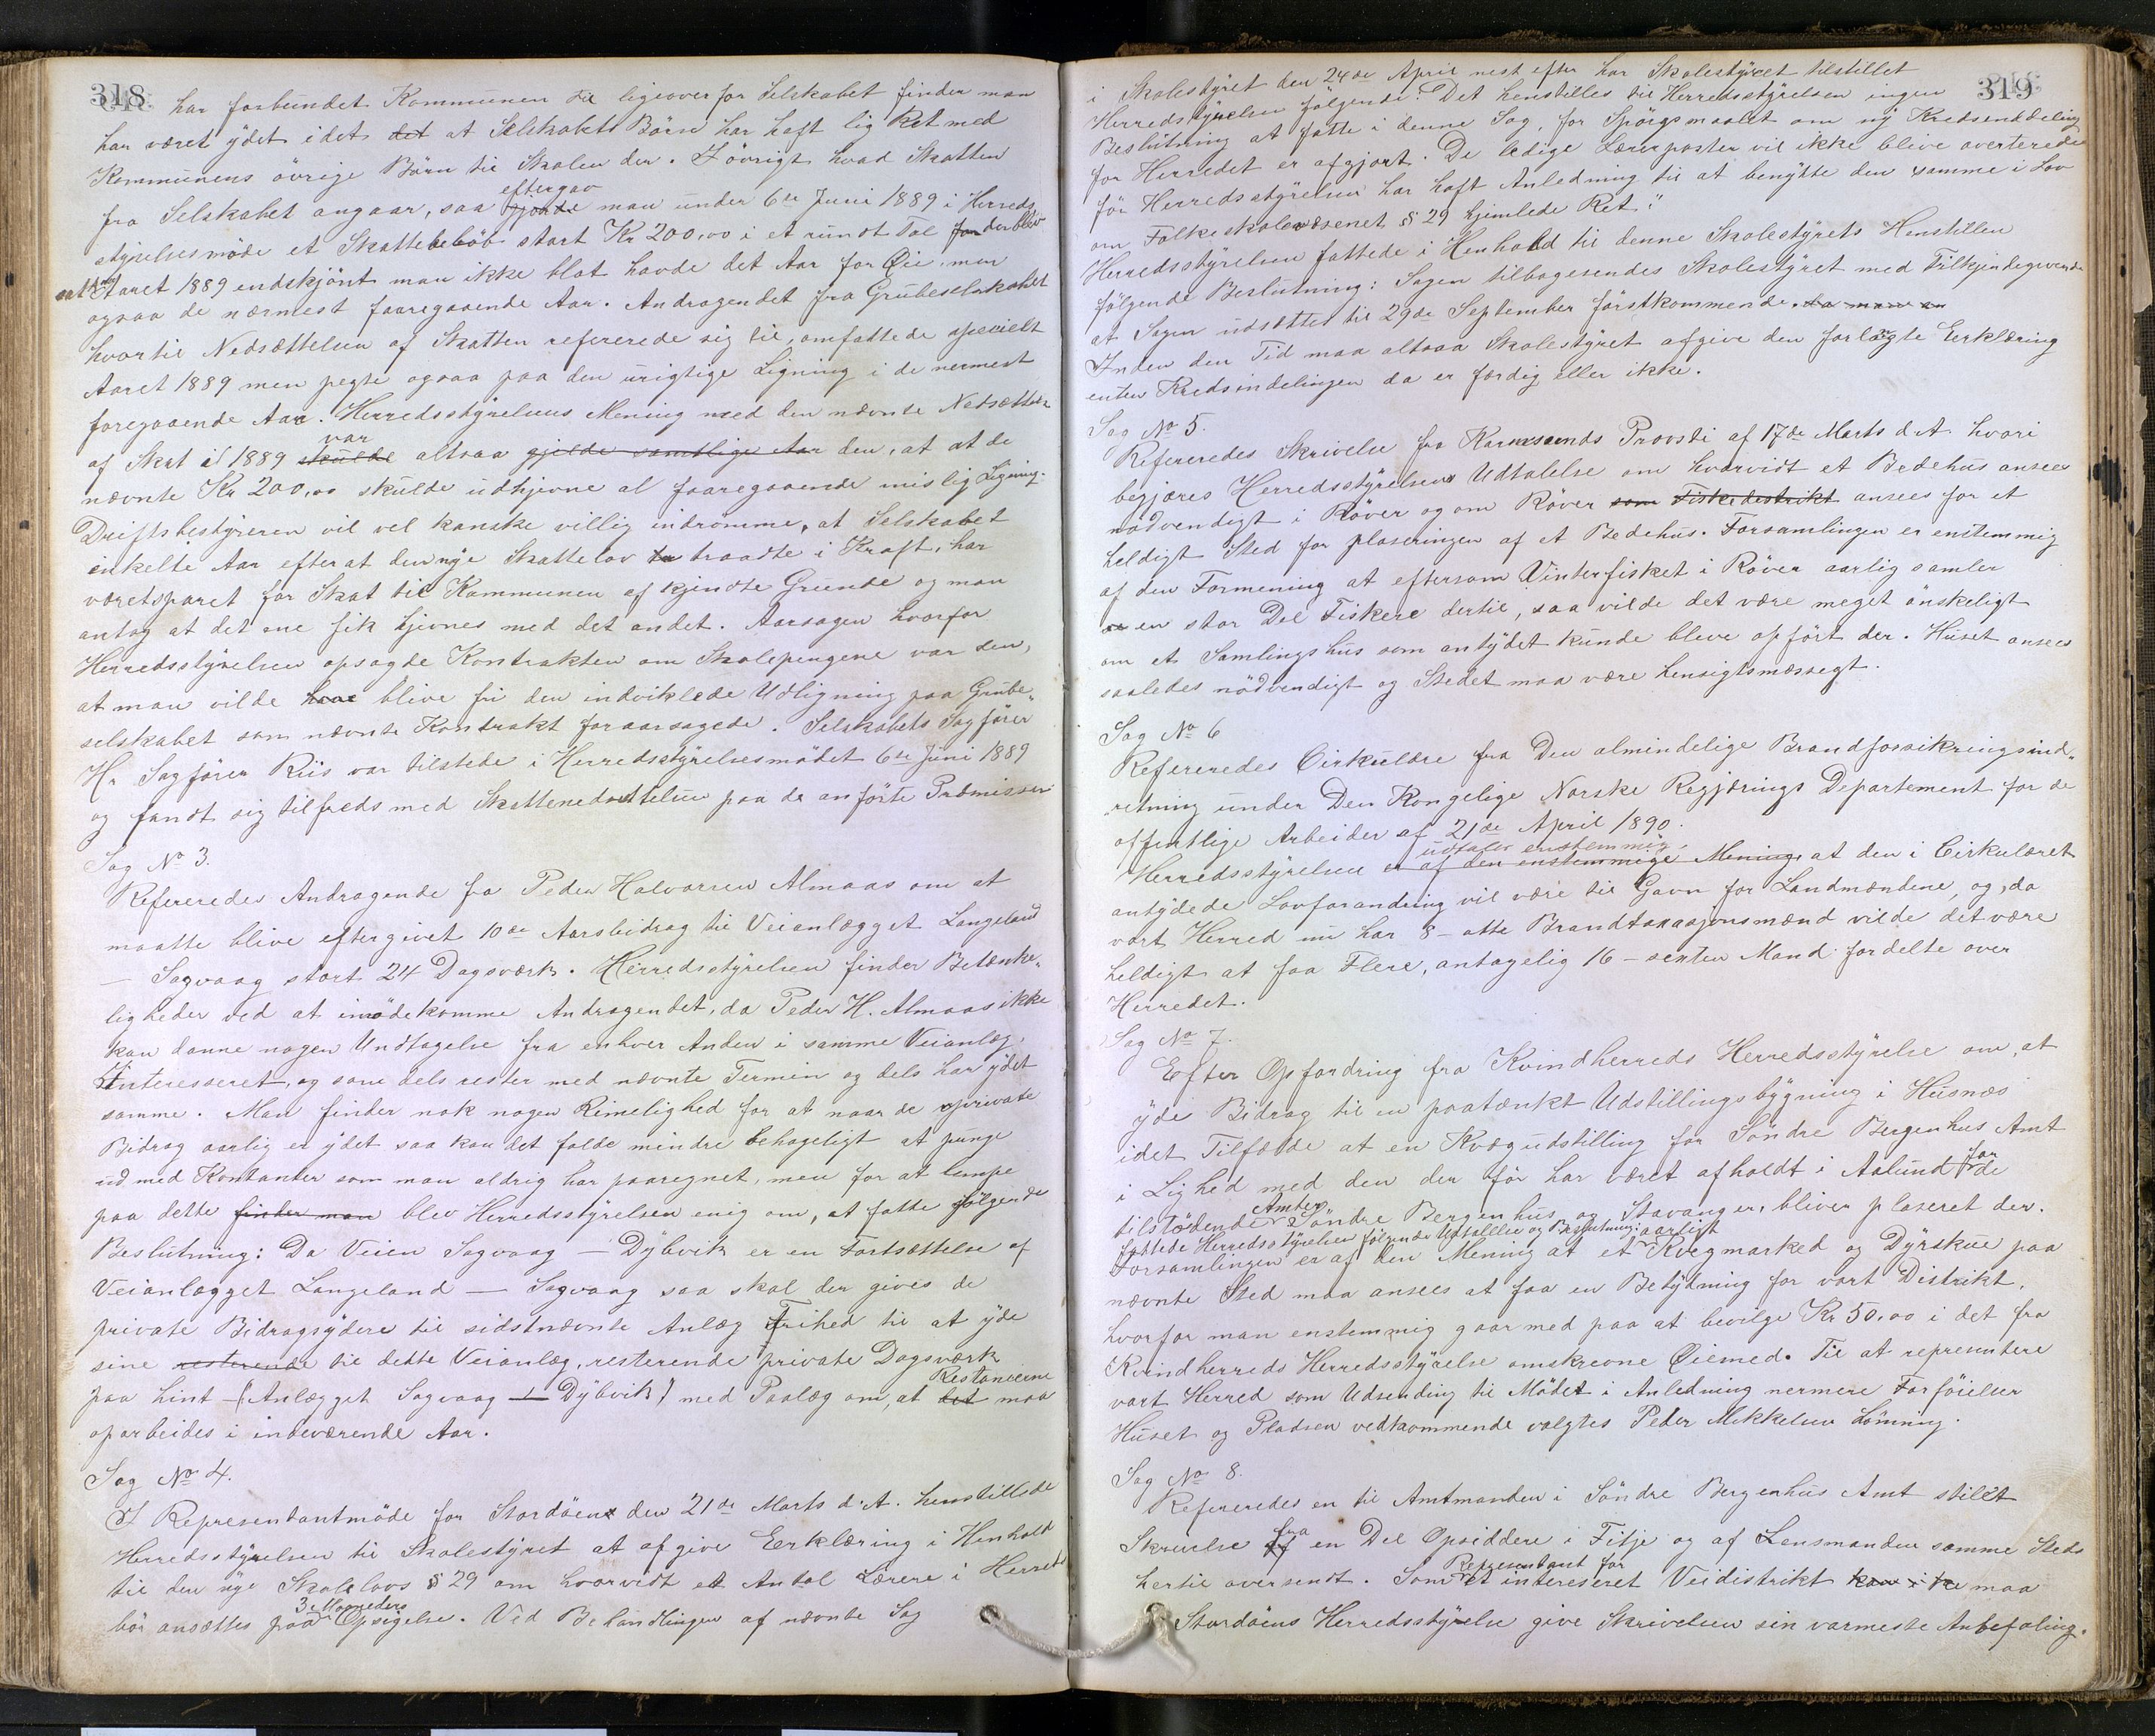 318
har forbundet Kommunen til ligeoverfor Selskabet finder man
har været ydet idet det at Selskabets Börn har haft lig Ret med
Kommunens övrige Börn til Skolen der. I övrigt hvad Skatten
eftergav
fra Selskabet angaar, saa gjorde man under 6te Juni 1889 i Herreds
styrelsesmöde et Skattebelöb stort Kr 200,00 i et rundt Tal for der blev
Aaret 1889 endskjönt man ikke blot havde det Aar for Öie, men
ogsaa de nærmest foregaaende Aar. Andragendet fra Grubeselskabet
hvortil Nedsættelsen af Skatten refererede sig til, omfattede specielt
Aaret 1889 men pegte ogsaa paa den urigtige Ligning i de nermest
foregaaende Aar. Herredsstyrelsens Mening med den nævnte Nedsættelse
var
af Skat i 1889 skulde altsaa gjelde samtlige Aar den, at at de
nævnte Kr 200,00 skulde udhjevne al foregaaende mislig Ligning.
Driftsbestyreren vil vel kanske villig indrömme, at Selskabet
enkelte Aar efter at den nye Skattelov traadte i Kraft, har
været sparet for Skat til Kommunen af kjendte Grunde og man
antog at det ene fik hjevnes med det andet. Aarsagen hvorfor
Herredsstyrelsen opsagde Kontrakten om Skolepengene var den,
at man vilde have blive fri den indviklede Udligning paa Grube-
selskabet som nævnte Kontrakt foraarsagede. Selskabets Sagförer
Hr Sagförer Riis var tilstede i Herredsstyrelsesmödet 6te Juni 1889
og fandt sig tilfreds med Skattenedsættelsen paa de anförte Præmisser
Sag No 3.
Refereredes Andragende fra Peder Halvorsen Almaas om at
maatte blive eftergivet 10de Aarsbidrag til Veianlægget Langeland
— Sagvaag stort 24 Dagsværk. Herredsstyrelsen finder Betænke-
ligheder ved at imödekomme Andragendet, da Peder H. Almaas ikke
kan danne nogen Undtagelse fra enhver Anden i samme Veianlæg
Interesseret, og som dels rester med nævnte Termin og dels har ydet
samme. Man finder nok nogen Rimelighed for at naar de private
Bidrag aarlig er ydet saa kan det falde mindre behageligt at punge
ud med Kontanter som man aldrig har paaregnet, men for at lempe
paa dette finder man blev Herredsstyrelsen enig om, at fatte fölgende
Beslutning: Da Veien Sagvaag — Dybvik er en Fortsættelse af
Veianlægget Langeland — Sagvaag saa skal der gives de
private Bidragsydere til sidstnævnte Anlæg Frihed til at yde
sine resterende til dette Veianlæg, resterende private Dagsværk
Restancerne
paa hint — (Anlægget Sagvaag — Dybvik) med Paalæg om, at det maa
oparbeides i indeværende Aar.
Sag No 4.
I Representantmöde for Stordöen den 21de Marts d.A. henstillede
Herredsstyrelsen til Skolestyret at afgive Erklæring i Henhold
til den nye Skolelovs § 29 om hvorvidt et Antal Lærere i Herred
3 Maaneders
bör ansættes paa Opsigelse. Ved Behandlingen af nævnte Sag
319
i Skolestyret den 24de April nest efter har Skolestyret tilstillet
Herredsstyrelsen fölgende: "Det henstilles til Herredsstyrelsen ingen
Beslutning at fatte i denne Sag, för Spörgsmaalet om ny Kredsinddeling
for Herredet er afgjort. De ledige Lærerposter vil ikke blive averterede
för Herredsstyrelsen har haft Anledning til at benytte den samme i Lov
om Folkeskolevæsenet § 29 hjemlede Ret."
Herredsstyrelsen fattede i Henhold til denne Skolestyrets Henstillen
fölgende Beslutning: Sagen tilbagesendes Skolestyret med Tilkjendegivende
at Sagen udsættes til 29de September förstkommende. da man
Inden den Tid maa altsaa Skolestyret afgive den forlangte Erklæring
enten Kredsindelingen da er færdig eller ikke.
Sag No 5.
Refereredes Skrivelse fra Karmsunds Provsti af 17de Marts d.A. hvori
begjæres Herredsstyrelsens Udtalelse om hvorvidt et Bedehus ansees
nödvendigt i Röver og om Röver som Fiskedistrikt ansees for et
heldigt Sted for plaseringen af et Bedehus. Forsamlingen er enstemmig
af den Formening at eftersom Vinterfisket i Röver aarlig samler
en stor Del Fiskere dertil, saa vilde det være meget önskeligt
om et Samlingshus som antydet kunde bleve opfört der. Huset ansees
saaledes nödvendigt og Stedet maa være hensigtsmæssegt.
Sag No 6
Refereredes Cirkulære fra Den almindelige Brandforsikringsind-
retning under Den Kongelige Norske Regjærings Departement for de
offentlige Arbeider af 21de April 1890.
udtaler enstemmig
Herredsstyrelsen er af den enstemmige Mening at den i Cirkulæret
antydede Lovforandring vil være til Gavn for Landmændene, og, da
vort Herred nu har 8 – otte Brandtaxasjonsmænd vilde det være
heldigt at faa Flere, antagelig 16 – sexten Mand fordelte over
Herredet.
Sag No 7.
Efter Opfordring fra Kvindherreds Herredsstyrelse om, at
yde Bidrag til en paatænkt Udstillingsbygning i Husnæs
idet Tilfælde at en Kvægudstilling for Söndre Bergenhus Amt
i Lighed med den der för har været afholdt i Aalund for de
Amter
tilstödende Söndre Bergenhus og Stavanger, bliver plaseret der.
fattede Herredsstyrelsen fölgende Udtalelse og Beslutning: aarligt
Forsamlingen er af den Mening at et Kvegmarked og Dyrskue paa
nævnte Sted maa ansees at faa en Betydning for vort Distrikt,
hvorfor man enstemmig gaar med paa at bevilge Kr 50,00 i det fra
Kvindherreds Herredsstyrelse omskrevne Öiemed. Til at representere
vort Herred som Udsending til Mödet i Anledning nermere Forföielser
Huset og Pladsen vedkommende valgtes Peder Mikkelsen Lönning.
Sag No 8.
Refereredes en til Amtmanden i Söndre Bergenhus Amt stilet
fra
Skrivelse af en Del Opsiddere i Fitje og af Lensmanden samme Steds
Representant for
hertil oversendt. Som et intereseret Veidistrikt maa
Stordöens Herredsstyrelse give Skrivelsen sin varmeste Anbefaling.